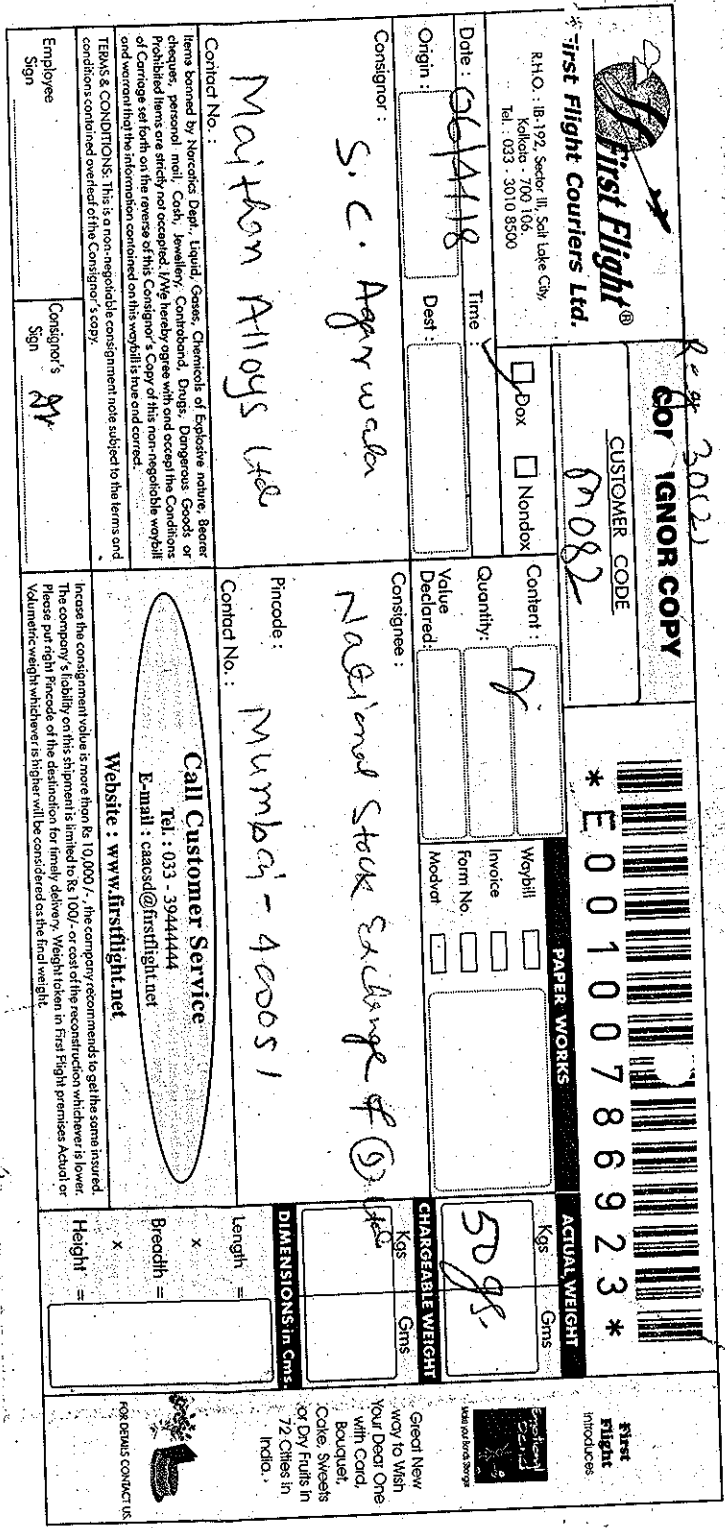 Reg 30(2)
First Flight®
First Flight Couriers Ltd.
R.H.O. : IB-192, Sector III, Salt Lake City,
Kolkata - 700 106.
Tel. : 033 - 3010 8500
IGNOR COPY
CUSTOMER CODE
M082
*E00100786923*
Date : 06/4/18
Time :
Dox
Nondox
Origin :
Dest :
Content :
Quantity:
Value
Declared:
PAPER WORKS
Waybill
Invoice
Form No.
Modvat
ACTUAL WEIGHT
Kgs Gms
50 gs.
CHARGEABLE WEIGHT
Kgs Gms
DIMENSIONS in Cms.
Length =
x
Breadth =
x
Height =
Consignor :
S. C. Agarwala
Maithan Alloys Ltd
Contact No. :
Consignee :
National Stock Exchange of (I) Ltd
Mumbai - 400051
Pincode :
Contact No. :
Items banned by Narcotics Dept., Liquid, Gases, Chemicals of Explosive nature, Bearer
cheques, personal mail, Cash, Jewellery, Contraband, Drugs, Dangerous Goods or
Prohibited Items are strictly not accepted. I/We hereby agree with and accept the Conditions
of Carriage set forth on the reverse of this Consignor's Copy of this non-negotiable waybill
and warrant that the information contained on this waybill is true and correct.
TERMS & CONDITIONS: This is a non-negotiable consignment note subject to the terms and
conditions contained overleaf of the Consignor's copy.
Employee
Sign
Consignor's
Sign
Call Customer Service
Tel. : 033 - 39444444
E-mail : caacsd@firstflight.net
Website : www.firstflight.net
Incase the consignment value is more than Rs 10,000/-, the company recommends to get the same insured.
The company's liability on this shipment is limited to Rs 100/- or cost of the reconstruction whichever is lower.
Please put right Pincode of the destination for timely delivery. Weight taken in First Flight premises Actual or
Volumetric weight whichever is higher will be considered as the final weight.
First
Flight
introduces
Great New
way to Wish
Your Dear One
with Card,
Bouquet,
Cake, Sweets
or Dry Fruits in
72 Cities in
India.
FOR DETAILS CONTACT US.